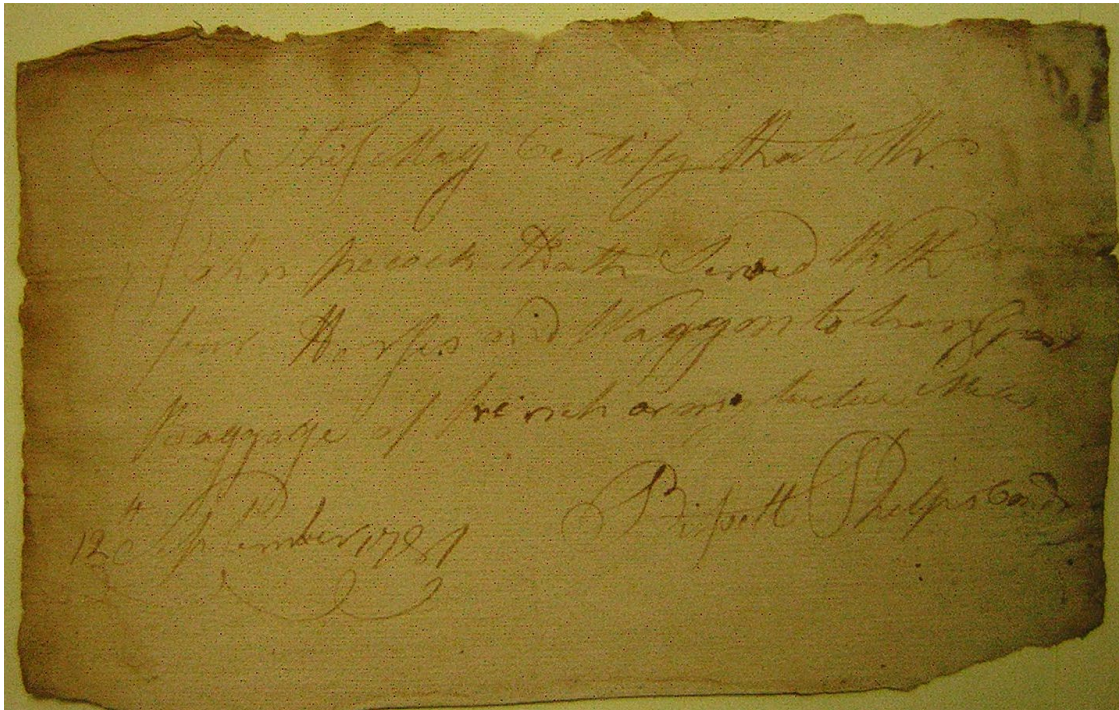 This May Certify that Mr.
John pecock Hath Served With
four Horses and Waggon to transport
Baggage of french army twelve Miles
12th September 1781 Phelps